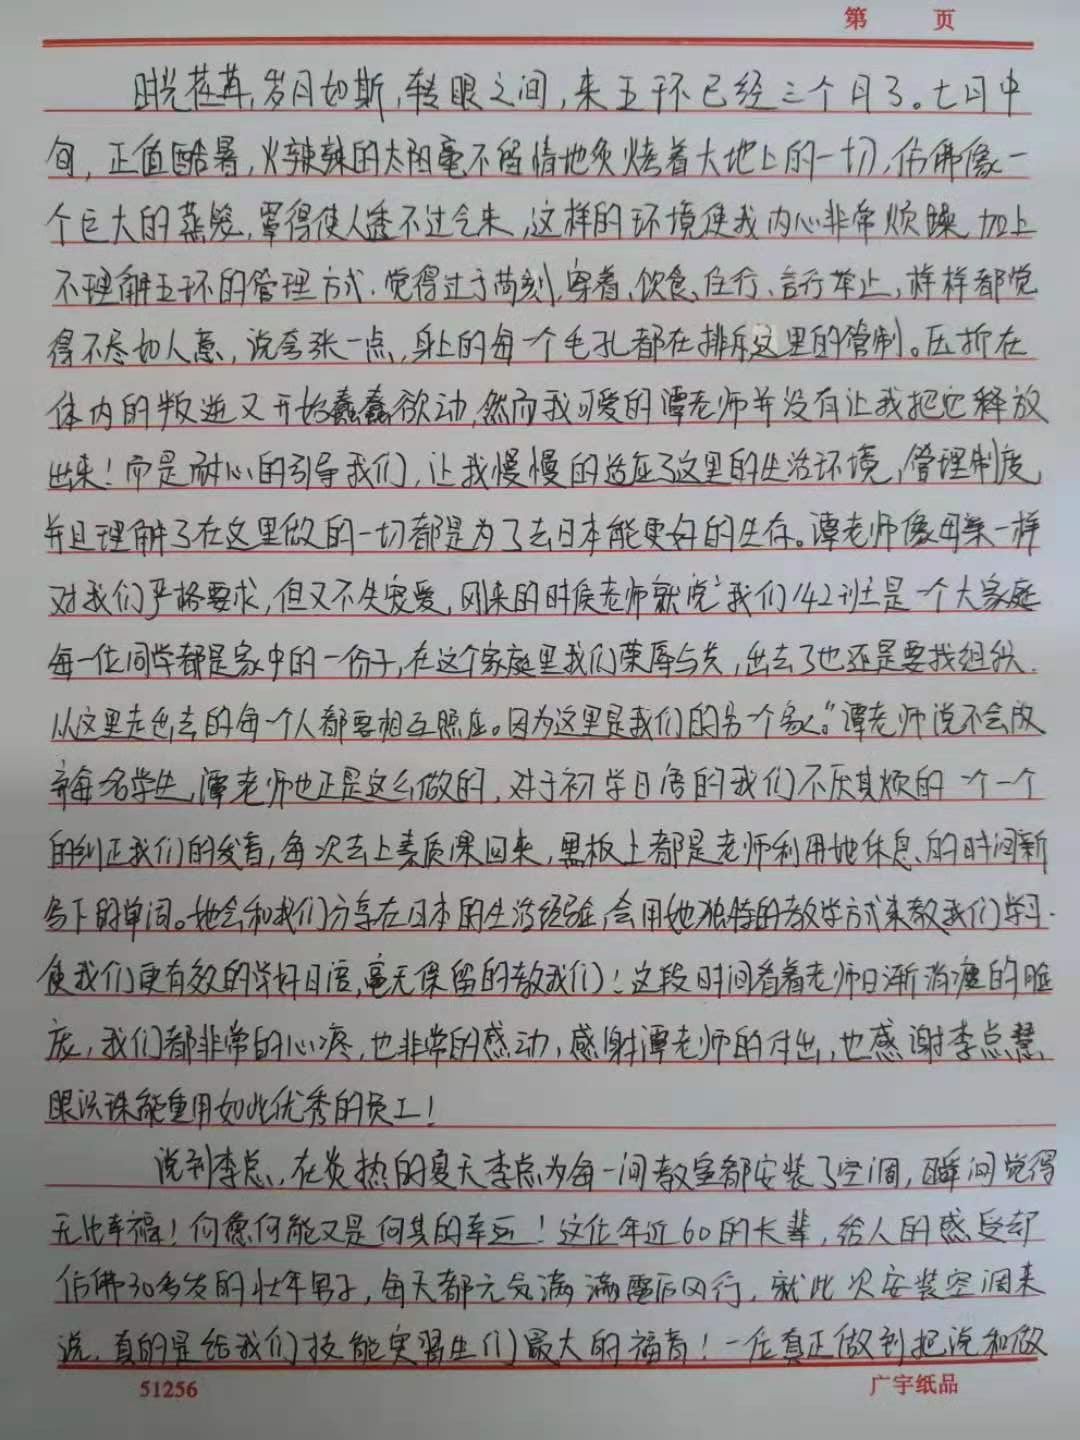 第 页
时光荏苒,岁月如斯,转眼之间,来五环已经三个月了。七月中
旬,正值酷暑,火辣辣的太阳毫不留情地炙烤着大地上的一切,仿佛像一
个巨大的蒸笼,罩得使人透不过气来,这样的环境使我内心非常烦躁,加上
不理解五环的管理方式.觉得过于苛刻,穿着、饮食、住行、言行举止,样样都觉
得不尽如人意,说夸张一点,身上的每一个毛孔都在排斥这里的管制。压抑在
体内的叛逆又开始蠢蠢欲动,然而我可爱的谭老师并没有让我把它释放
出来!而是耐心的引导我们,让我慢慢的适应了这里的生活环境,管理制度,
并且理解了在这里做的一切都是为了去日本能更好的生存。谭老师像母亲一样
对我们严格要求,但又不失宠爱,刚来的时侯老师就说"我们142班是一个大家庭
每一位同学都是家中的一份子,在这个家庭里我们荣辱与共,出去了也还是要找组织.
从这里走出去的每一个人都要相互照应。因为这里是我们的另一个家。"谭老师说不会放
弃每名学生,谭老师也正是这么做的,对于初学日语的我们不厌其烦的一个一个
的纠正我们的发音,每次去上素质课回来,黑板上都是老师利用她休息的时间新
写下的单词。她会和我们分享在日本的生活经验,会用她独特的教学方式来教我们学习.
使我们更有效的学好日语,毫无保留的教我们!这段时间看着老师日渐消瘦的脸
庞,我们都非常的心疼,也非常的感动,感谢谭老师的付出,也感谢李总慧
眼识珠能重用如此优秀的员工!
说到李总,在炎热的夏天李总为每一间教室都安装了空调,瞬间觉得
无比幸福!何德何能又是何其的幸运!这位年近60的长辈,给人的感受却
仿佛30多岁的壮年男子,每天都元气满满雷厉风行,就此次安装空调来
说,真的是给我们技能实习生们最大的福音!一位真正做到把说和做
51256 广宇纸品